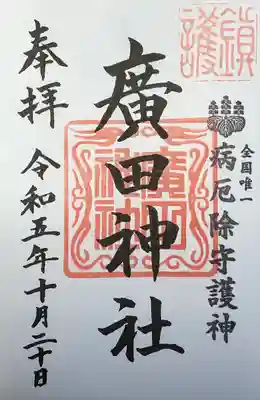 鎮護
全国唯一
病厄除守護神
廣田神社
廣田神社
奉拝
令和五年十月二十日